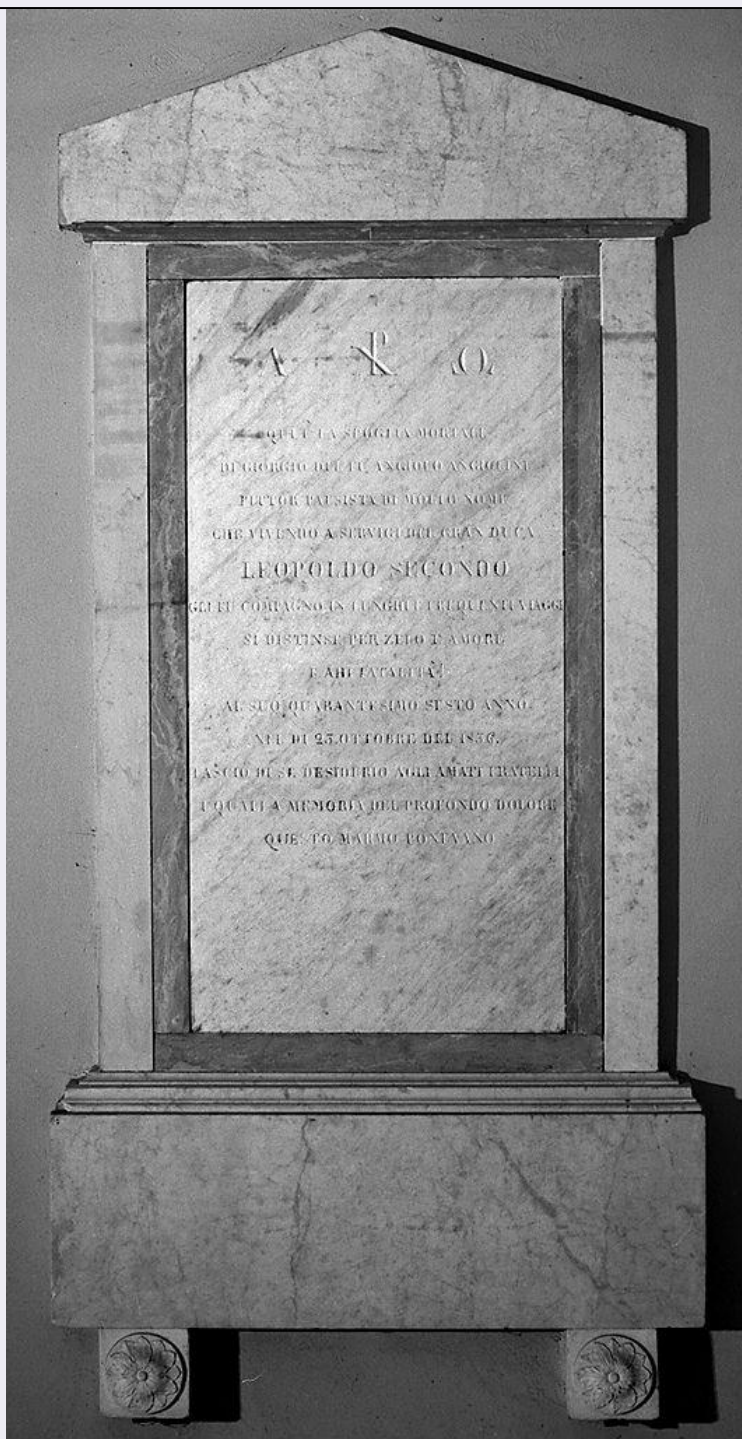 Α ☧ Ω
QUI È LA SPOGLIA MORTALE
DI GIORGIO DEL FU ANGIOLO ANGIOLINI
PITTOR PAESISTA DI MOLTO NOME
CHE VIVENDO A SERVIGI DEL GRAN DUCA
LEOPOLDO SECONDO
GLI FU COMPAGNO IN LUNGHI E FREQUENTI VIAGGI
SI DISTINSE PER ZELO E AMORE
E AHI FATALITÀ!
AL SUO QUARANTESIMO SESTO ANNO
NEL DI 23. OTTOBRE DEL 1836.
LASCIÒ DI SE DESIDERIO AGLI AMATI FRATELLI
I QUALI A MEMORIA DEL PROFONDO DOLORE
QUESTO MARMO PONEVANO